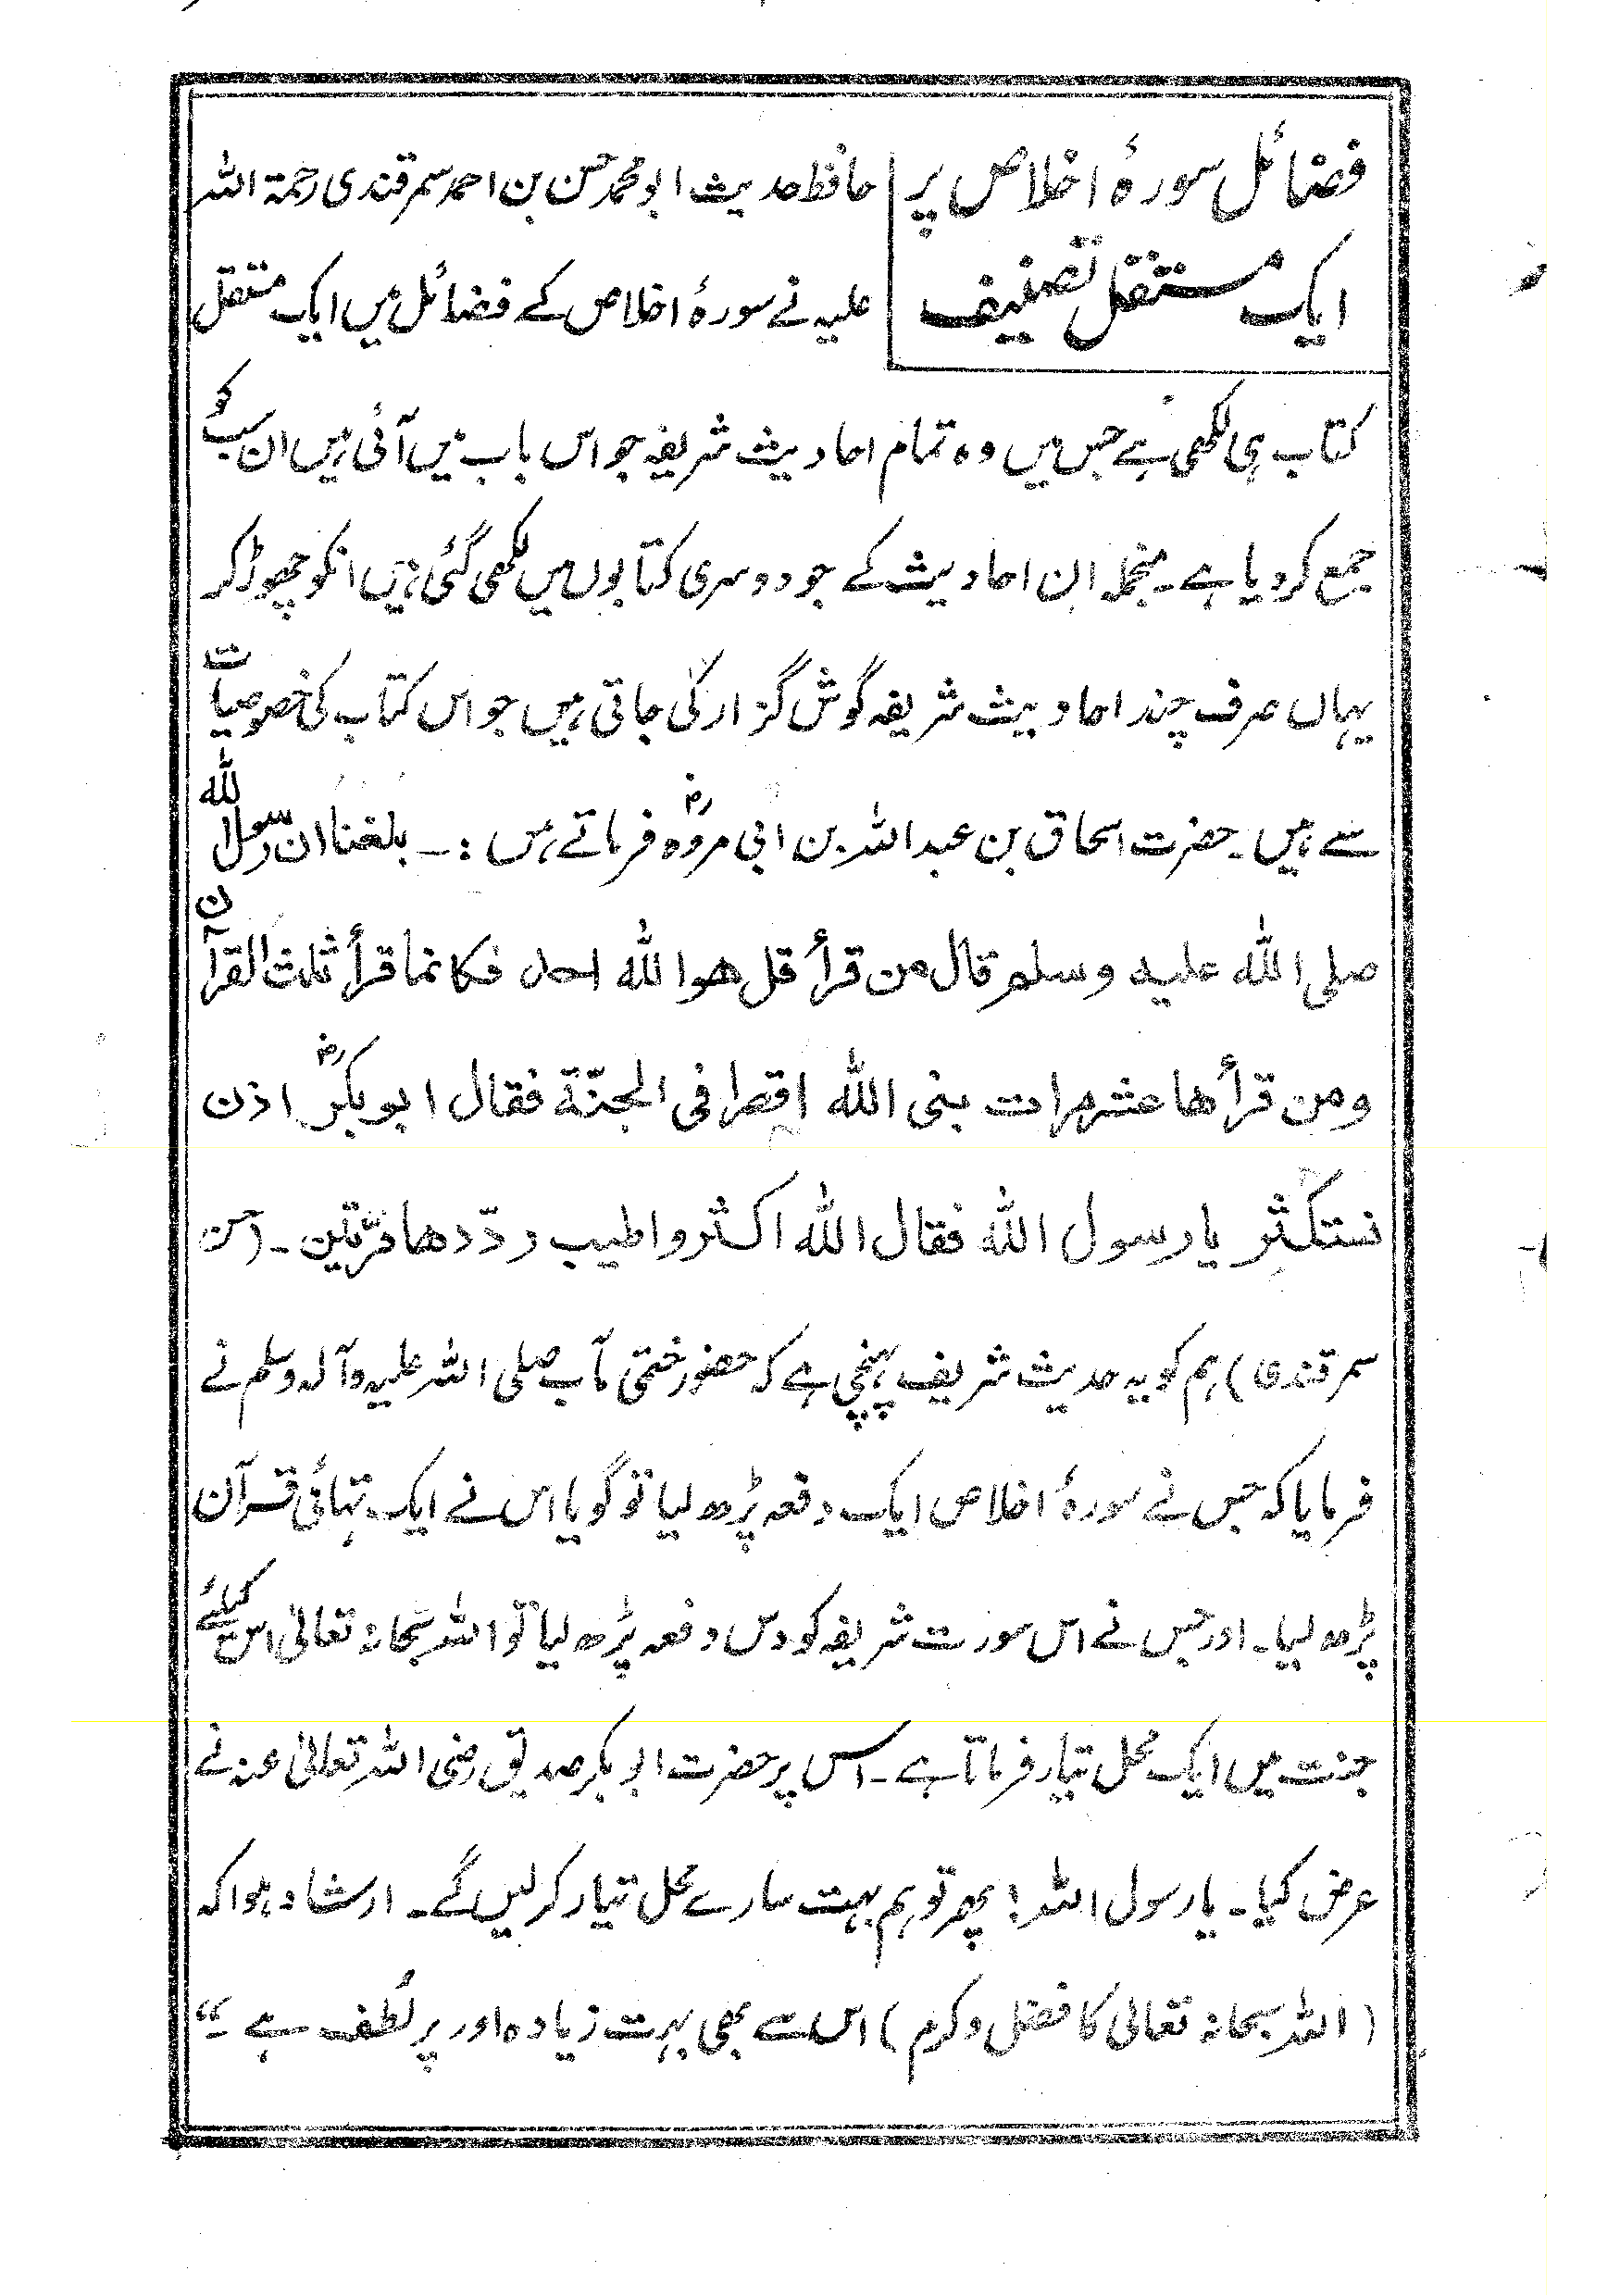 فضائل سورۂ اخلاص پر
ایک مستقل تصنیف
حافظ حدیث ابو محمد حسن بن احمد سمرقندی رحمۃ اللہ
علیہ نے سورۂ اخلاص کے فضائل میں ایک مستقل
کتاب ہی لکھی ہے جس میں وہ تمام احادیث شریفہ جو اس باب میں آئی ہیں ان سب کو
جمع کر دیا ہے۔ منجملہ ان احادیث کے جو دوسری کتابوں میں لکھی گئی ہیں انکو چھوڑ کر
یہاں صرف چند احادیث شریفہ گوش گزار کی جاتی ہیں جو اس کتاب کی خصوصیات
سے ہیں۔ حضرت اسحاق بن عبداللہ بن ابی مروہؓ فرماتے ہیں :۔ بلغنا ان رسول اللہ
صلی اللہ علیہ وسلم قال من قرأ قل ھو اللہ احد فکانما قرأ ثلث القرآن
ومن قرأھا عشر مرات بنی اللہ قصرا فی الجنّۃ فقال ابوبکرؓ اذن
نستکثر یا رسول اللہ فقال اللہ اکثر واطیب ردّدھا مرّتین ۔ (من
سمرقندی) ہم کو یہ حدیث شریف پہنچی ہے کہ حضور ختمی مآب صلی اللہ علیہ وآلہ وسلم نے
فرمایا کہ جس نے سورۂ اخلاص ایک دفعہ پڑھ لیا تو گویا اس نے ایک تہائی قرآن
پڑھ لیا۔ اور جس نے اس سورت شریفہ کو دس دفعہ پڑھ لیا تو اللہ سبحانہ تعالیٰ اس کیلئے
جنت میں ایک محل تیار فرماتا ہے۔ اس پر حضرت ابو بکر صدیق رضی اللہ تعالیٰ عنہ نے
عرض کیا۔ یا رسول اللہ! پھر تو ہم بہت سارے محل تیار کر لیں گے۔ ارشاد ہوا کہ
(اللہ سبحانہ تعالیٰ کا فضل و کرم) اس سے بھی بہت زیادہ اور پر لُطف ہے ۔“